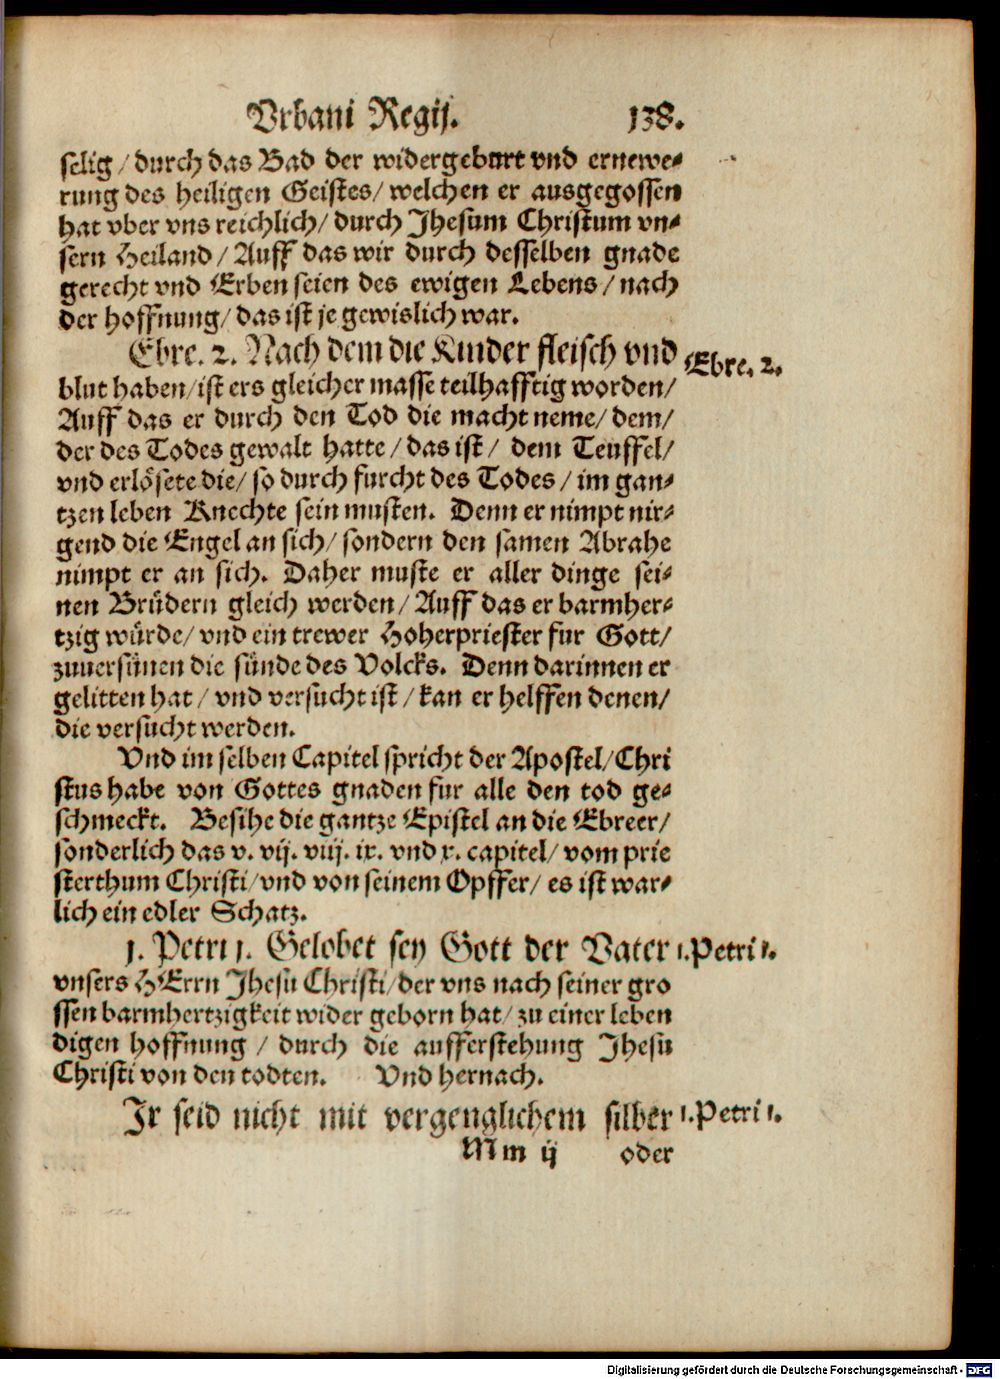 Vrbani Regij. 138.
selig / durch das Bad der widergeburt vnd ernewe-
rung des heiligen Geistes / welchen er ausgegossen
hat vber vns reichlich / durch Jhesum Christum vn-
sern Heiland / Auff das wir durch desselben gnade
gerecht vnd Erben seien des ewigen Lebens / nach
der hoffnung / das ist je gewislich war.
Ebre. 2. Nach dem die Kinder fleisch vnd
Ebre. 2.
blut haben / ist ers gleicher masse teilhafftig worden /
Auff das er durch den Tod die macht neme / dem /
der des Todes gewalt hatte / das ist / dem Teuffel /
vnd erlösete die / so durch furcht des Todes / im gan-
tzen leben Knechte sein musten. Denn er nimpt nir-
gend die Engel an sich / sondern den samen Abrahe
nimpt er an sich. Daher muste er aller dinge sei-
nen Brüdern gleich werden / Auff das er barmher-
tzig würde / vnd ein trewer Hoherpriester fur Gott /
zuuersünen die sünde des Volcks. Denn darinnen er
gelitten hat / vnd versucht ist / kan er helffen denen /
die versucht werden.
Vnd im selben Capitel spricht der Apostel / Chri
stus habe von Gottes gnaden fur alle den tod ge-
schmeckt. Besihe die gantze Epistel an die Ebreer /
sonderlich das v. vij. viij. ix. vnd x. capitel / vom prie
sterthum Christi / vnd von seinem Opffer / es ist war-
lich ein edler Schatz.
1. Petri 1. Gelobet sey Gott der Vater
1. Petri 1.
vnsers HErrn Jhesu Christi / der vns nach seiner gro
ssen barmhertzigkeit wider geborn hat / zu einer leben
digen hoffnung / durch die aufferstehung Jhesu
Christi von den todten. Vnd hernach.
Jr seid nicht mit vergenglichem silber
1. Petri 1.
Mm ij oder
Digitalisierung gefördert durch die Deutsche Forschungsgemeinschaft - DFG